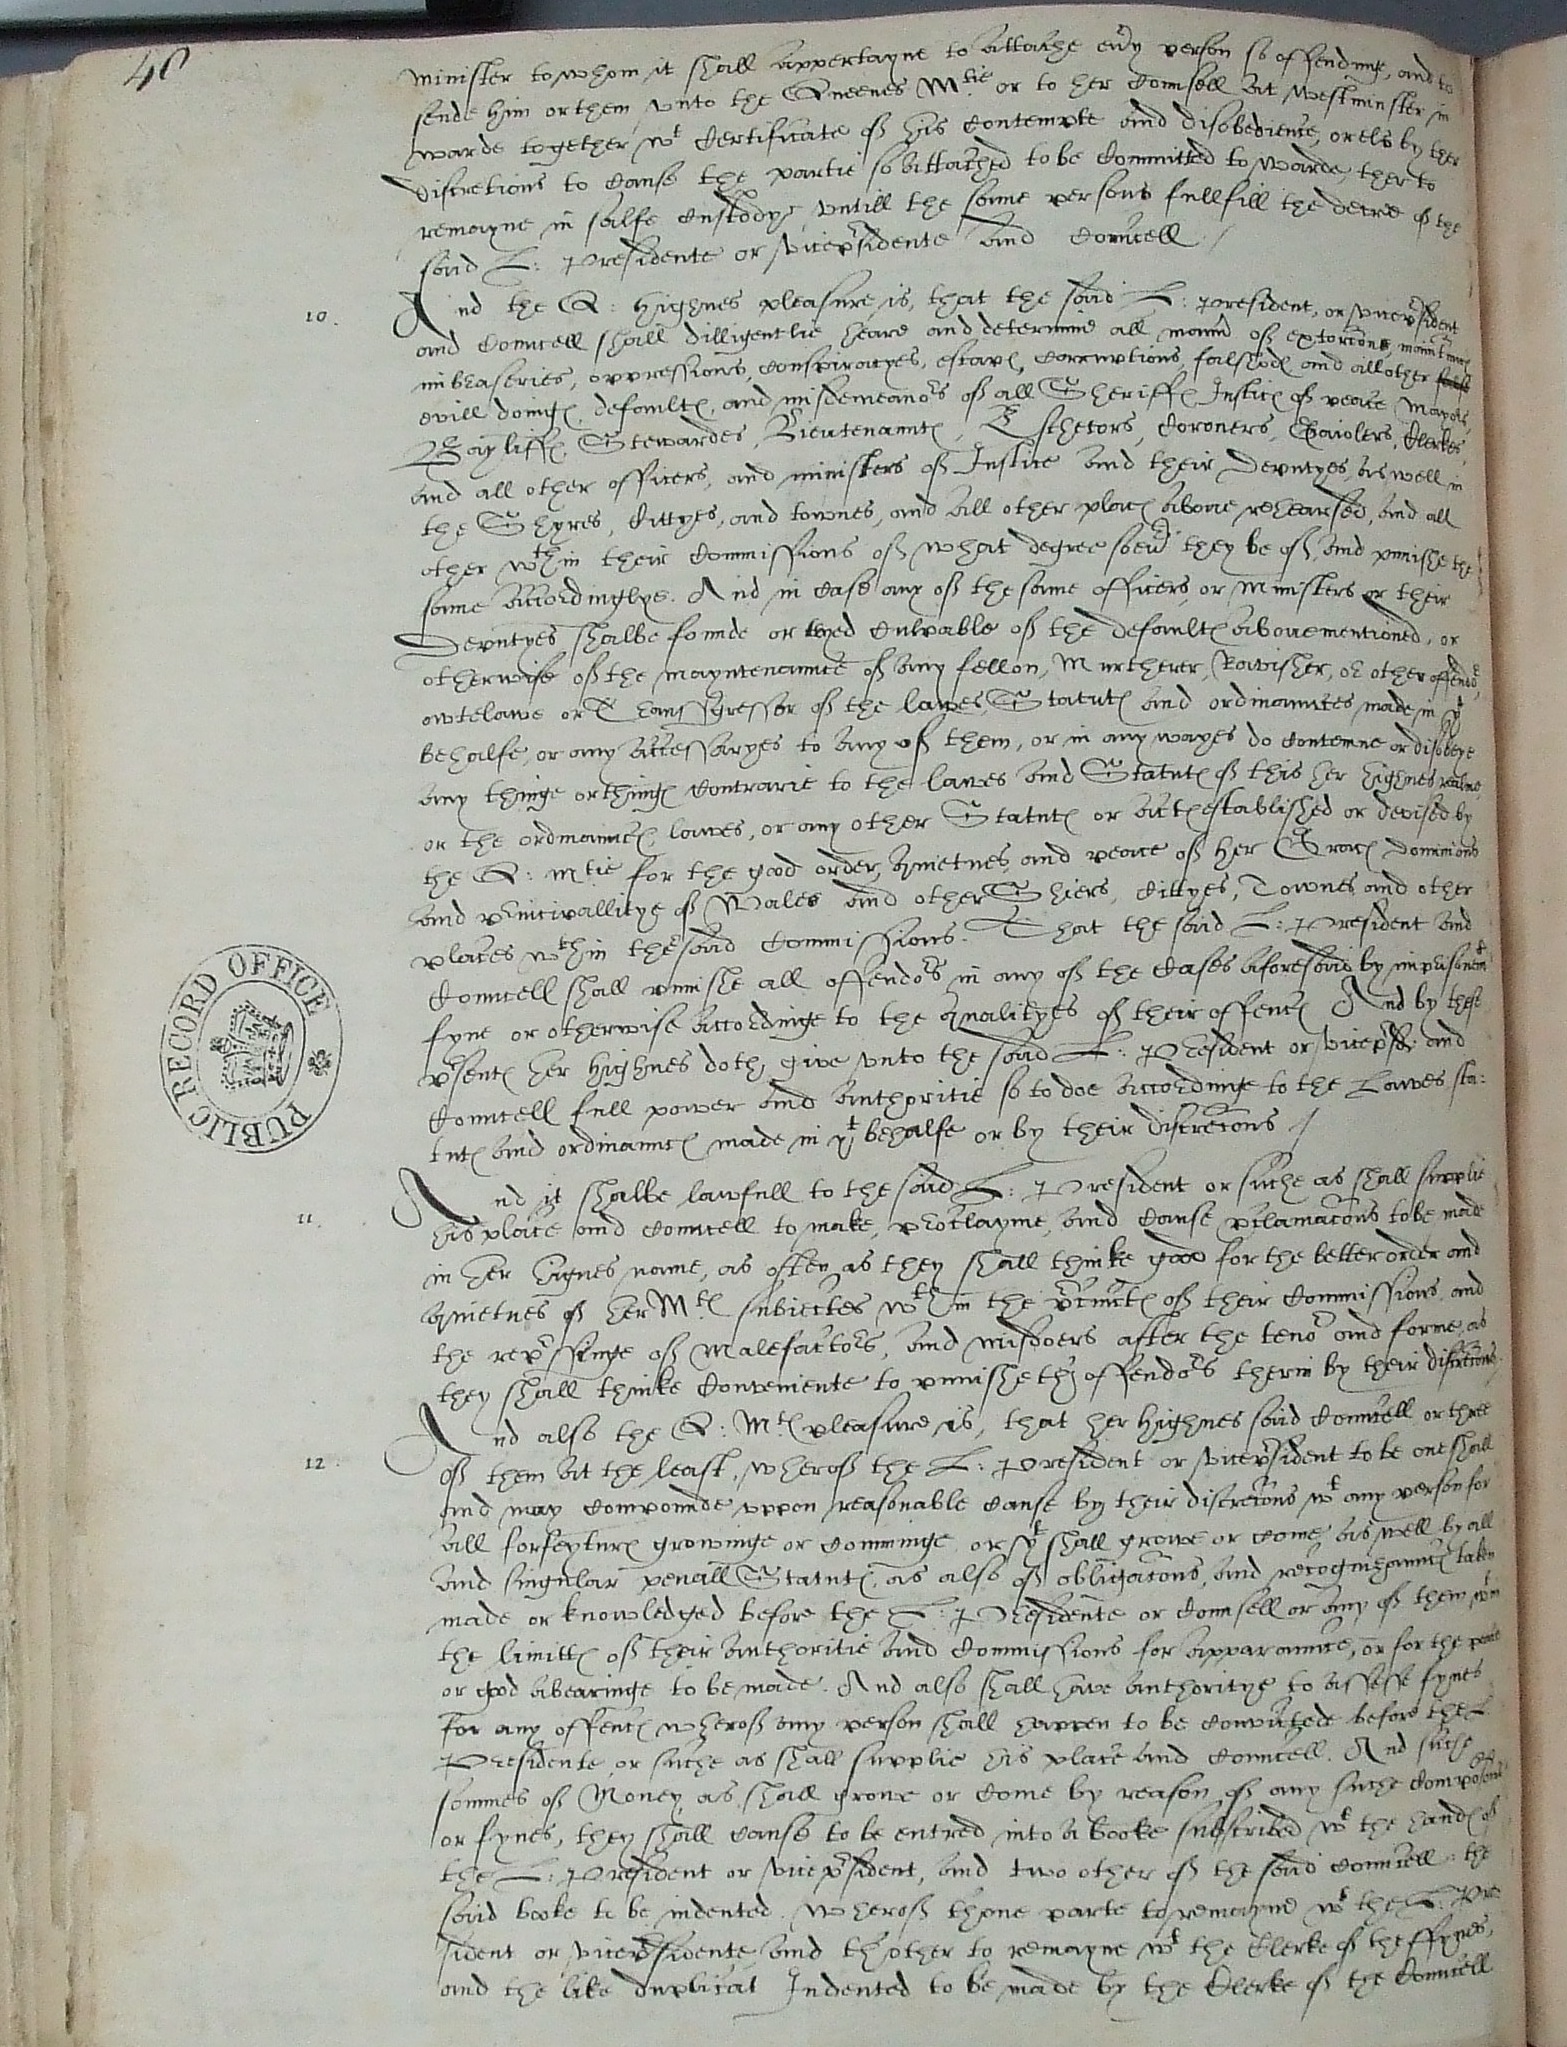 40
minister to whom it shall appertayne to attache eu'y person so offendinge, and to
sende him or them vnto the Queenes Mtie or to her Counsell at Westminster in
warde together wt Certificate of his Contempte and disobedience, or els by ther
discretions to Cause the partie so attached to be Committed to warde, ther to
remayne in salfe Custodye vntill the same persons fullfill the decre of the
said L: Presidente or vicep'sidente and Councell /
10. And the Q: Highnes pleasure is, that the said L: President, or vicep'sident
and Councell shall dilligentlie heare and determine all man' of extorcons, maintnn'c
imbraseries, oppressions, Conspiracyes, escapes, Corruptions, falshods and all other
evill doinges, defaultes, and misdemeanors of all Sheriffes Justices of peace Mayors,
Bayliffes, Stewardes, Lieutenauntes, Eschetors, Coroners, Gaiolers, Clerkes,
and all other officers, and ministers of Justice and their Deputyes, as well in
the Shyres, Cittyes, and townes, and all other places aboue rehearsed, and all
other wthin their Commissions of what degree soeu' they be of, and punishe the
same accordinglye. And in Case any of the same officers or Ministers or their
Deputyes shalbe founde or tryed Culpable of the defaultes aboue mentioned, or
otherwise of the mayntenaunce of any fellon, Murtherer, Ravisher, or other offendor,
owtelawe or Transsgressor of the lawes, Statutes and ordinaunces made in yt
behalfe, or any accessaryes to any of them, or in any wayes do Contemne or disobeye
any thinge or thinges Contrarie to the lawes and Statutes of this her highnes realme,
or the ordinaunces, lawes, or any other Statutes or actes established or devised by
the Q: mtie for the good order, quietnes, and peace of her Graces Dominions
and principallitye of Wales and other Shiers, Cittyes, Townes and other
places wthin the said Commissions. That the said L: President and
Councell shall punishe all offendors in any of the Cases aforesaid by imprisonmt
fyne or otherwise accordinge to the qualityes of their offences And by these
p'sentes her Highnes doth give vnto the said L: President or vicep'st and
Councell full power and authoritie so to doe accordinge to the Lawes sta:
tutes and ordinaunces made in yt behalfe or by their discrecons /
11. And it shalbe lawfull to the said L: President or suche as shall supplie
his place and Councell to make, proclayme, and Cause p'clamacons to be made
in her highnes name, as often as they shall thinke good for the better order and
quietnes of her Mtes subiectes wthin the p'cinctes of their Commissions and
the rep'ssinge of Malefactors, and misdoers after the tenor and forme, as
they shall thinke Conveniente to punishe the offendors therin by their discrecons.
12. And also the Q: Mtes pleasure is, that her Highnes said Councell or three
of them at the least, wherof the L: President or vicep'sident to be one shall
and may Compounde vppon reasonable Cause by their discrecons wt any person for
all forfeytures growinge or Comminge or yt shall growe or Come as well by all
and singular penall Statutes, as also of obligacons, and recognizaunces taken
made or knowledged before the L: Presidente or Counsell or any of them wtin
the limittes of their authoritie and Commissions for apparaunce, or for the peace
or good abearinge to be made. And also shall have authoritye to assesse fynes
for any offences wherof any person shall happen to be Convictede before the L
Presidente or suche as shall supplie his place and Councell. And suche
sommes of Money as shall growe or Come by reason of any suche Composicons
or fynes, they shall Cause to be entred into a booke subscribed wt the handes of
the L: President or vicep'sident, and two other of the said Councell the
said booke to be indented. Wherof thone parte to remayne wt the L: Pre
sident or vicep'sidente, and thother to remayne wt the Clerke of the ffynes,
and the like duplicat Indented to be made by the Clerke of the Councell
PUBLIC RECORD OFFICE